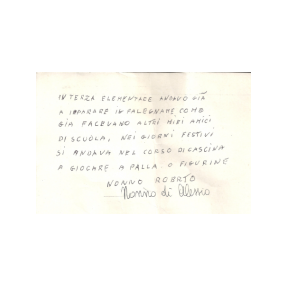 IN TERZA ELEMENTARE ANDAVO GIÀ
A IMPARARE IN FALEGNAME COME
GIA FACEVANO ALTRI MIEI AMICI
DI SCUOLA, NEI GIORNI FESTIVI
SI ANDAVA NEL CORSO DI CASCINA
A GIOCARE A PALLA O FIGURINE
NONNO ROBRTO
Nonno di Alessio